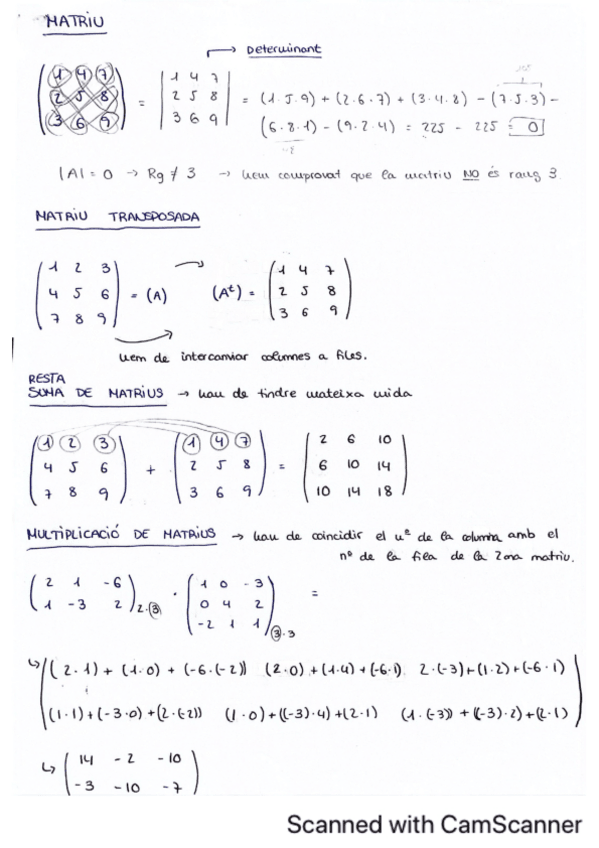 MATRIU
→ Determinant
(1 4 7) |1 4 7|
(2 5 8) = |2 5 8| = (1·5·9) + (2·6·7) + (3·4·8) - (7·5·3) -
(3 6 9) |3 6 9| (6·8·1) - (9·2·4) = 225 - 225 = 0
|A| = 0 → Rg ≠ 3 → hem comprovat que la matriu NO és rang 3.
MATRIU TRANSPOSADA
(1 2 3) → (1 4 7)
(4 5 6) = (A) (Aᵗ) = (2 5 8)
(7 8 9) (3 6 9)
hem de intercanviar columnes a files.
RESTA
SUMA DE MATRIUS → han de tindre mateixa mida
(1 2 3) (1 4 7) (2 6 10)
(4 5 6) + (2 5 8) = (6 10 14)
(7 8 9) (3 6 9) (10 14 18)
MULTIPLICACIÓ DE MATRIUS → han de coincidir el nº de la columna amb el
nº de la fila de la 2ona matriu.
(2 1 -6) (1 0 -3) =
(1 -3 2) 2·3 · (0 4 2)
(-2 1 1) 3·3
↳ ((2·1) + (1·0) + (-6·(-2)) (2·0) + (1·4) + (-6·1) 2·(-3)+(1·2)+(-6·1)
(1·1)+(-3·0)+(2·(-2)) (1·0)+((-3)·4)+(2·1) (1·(-3)) + ((-3)·2)+(2·1)
↳ (14 -2 -10)
(-3 -10 -7)
Scanned with CamScanner